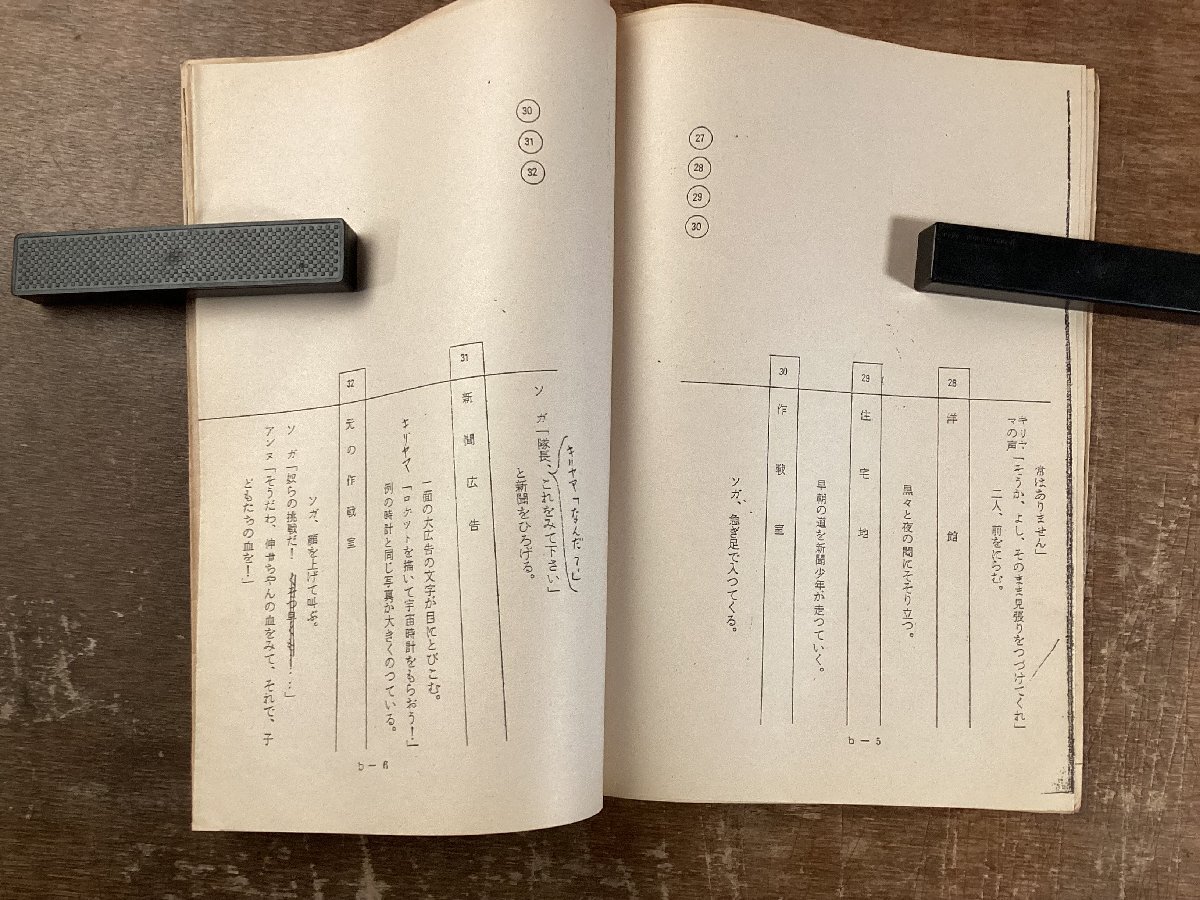 ㉗
㉘
㉙
㉚
常はありません」
キリヤマの声「そうか、よし、そのまま見張りをつづけてくれ」
二人、前をにらむ。
28 洋館
黒々と夜の闇にそそり立つ。
29 住宅地
早朝の道を新聞少年が走つていく。
30 作戦室
ソガ、急ぎ足で入つてくる。
b－5
㉚
㉛
㉜
キリヤマ「なんだ?」
ソガ「隊長、これをみて下さい」
と新聞をひろげる。
31 新聞広告
一面の大広告の文字が目にとびこむ。
キリヤマ「ロケットを描いて宇宙時計をもらおう!」
例の時計と同じ写真が大きくのつている。
32 元の作戦室
ソガ、顔を上げて叫ぶ。
ソガ「奴らの挑戦だ!
アンヌ「そうだわ、伸ちやんの血をみて、それで、子
どもたちの血を!」
b－6